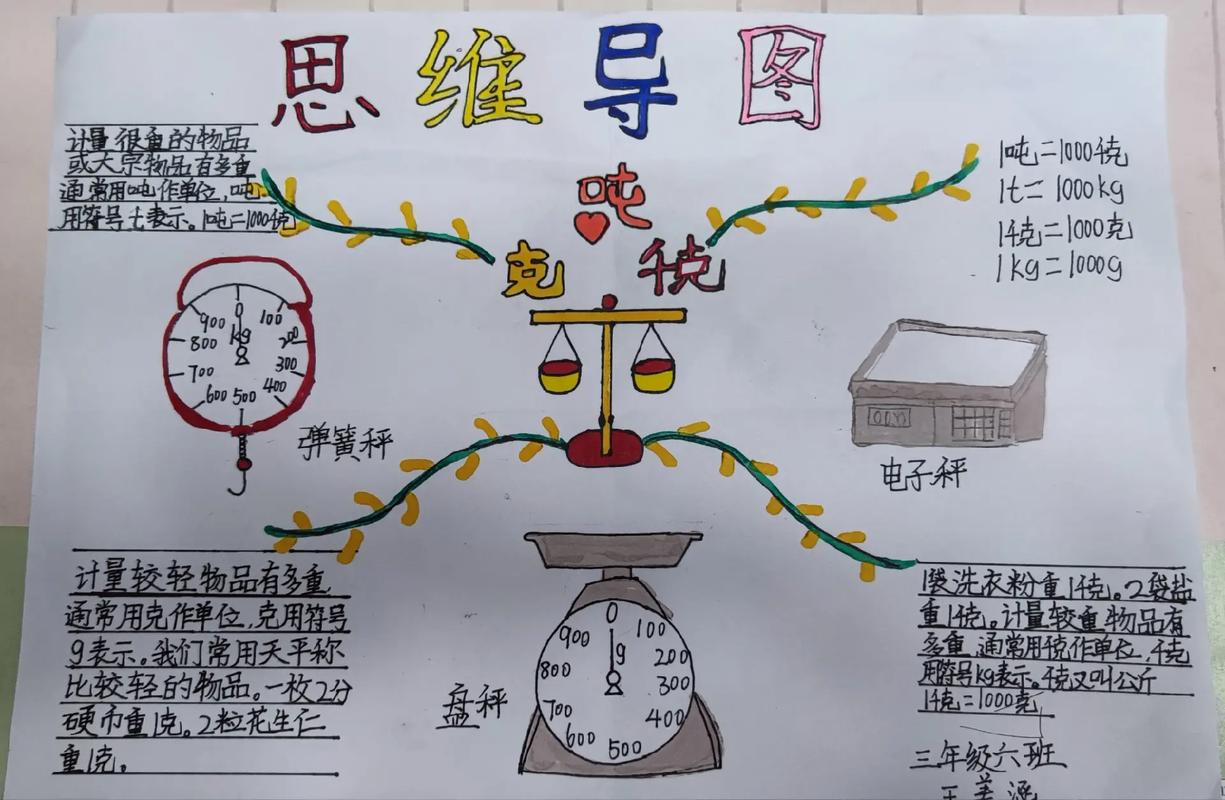 思维导图
计量很重的物品
或大宗物品有多重
通常用吨作单位,吨
用符号t表示。1吨=1000千克
吨
克 千克
1吨=1000千克
1t=1000kg
1千克=1000克
1kg=1000g
0
100
200
300
400
500
600
700
800
900
kg
弹簧秤
电子秤
计量较轻物品有多重
通常用克作单位,克用符号
g表示。我们常用天平称
比较轻的物品。一枚2分
硬币重1克。2粒花生仁
重1克。
0
100
200
300
400
500
600
700
800
900
g
盘秤
1袋洗衣粉重1千克。2袋盐
重1千克。计量较重物品有
多重,通常用千克作单位,千克
用符号kg表示。千克又叫公斤
1千克=1000克
三年级六班
王美涵